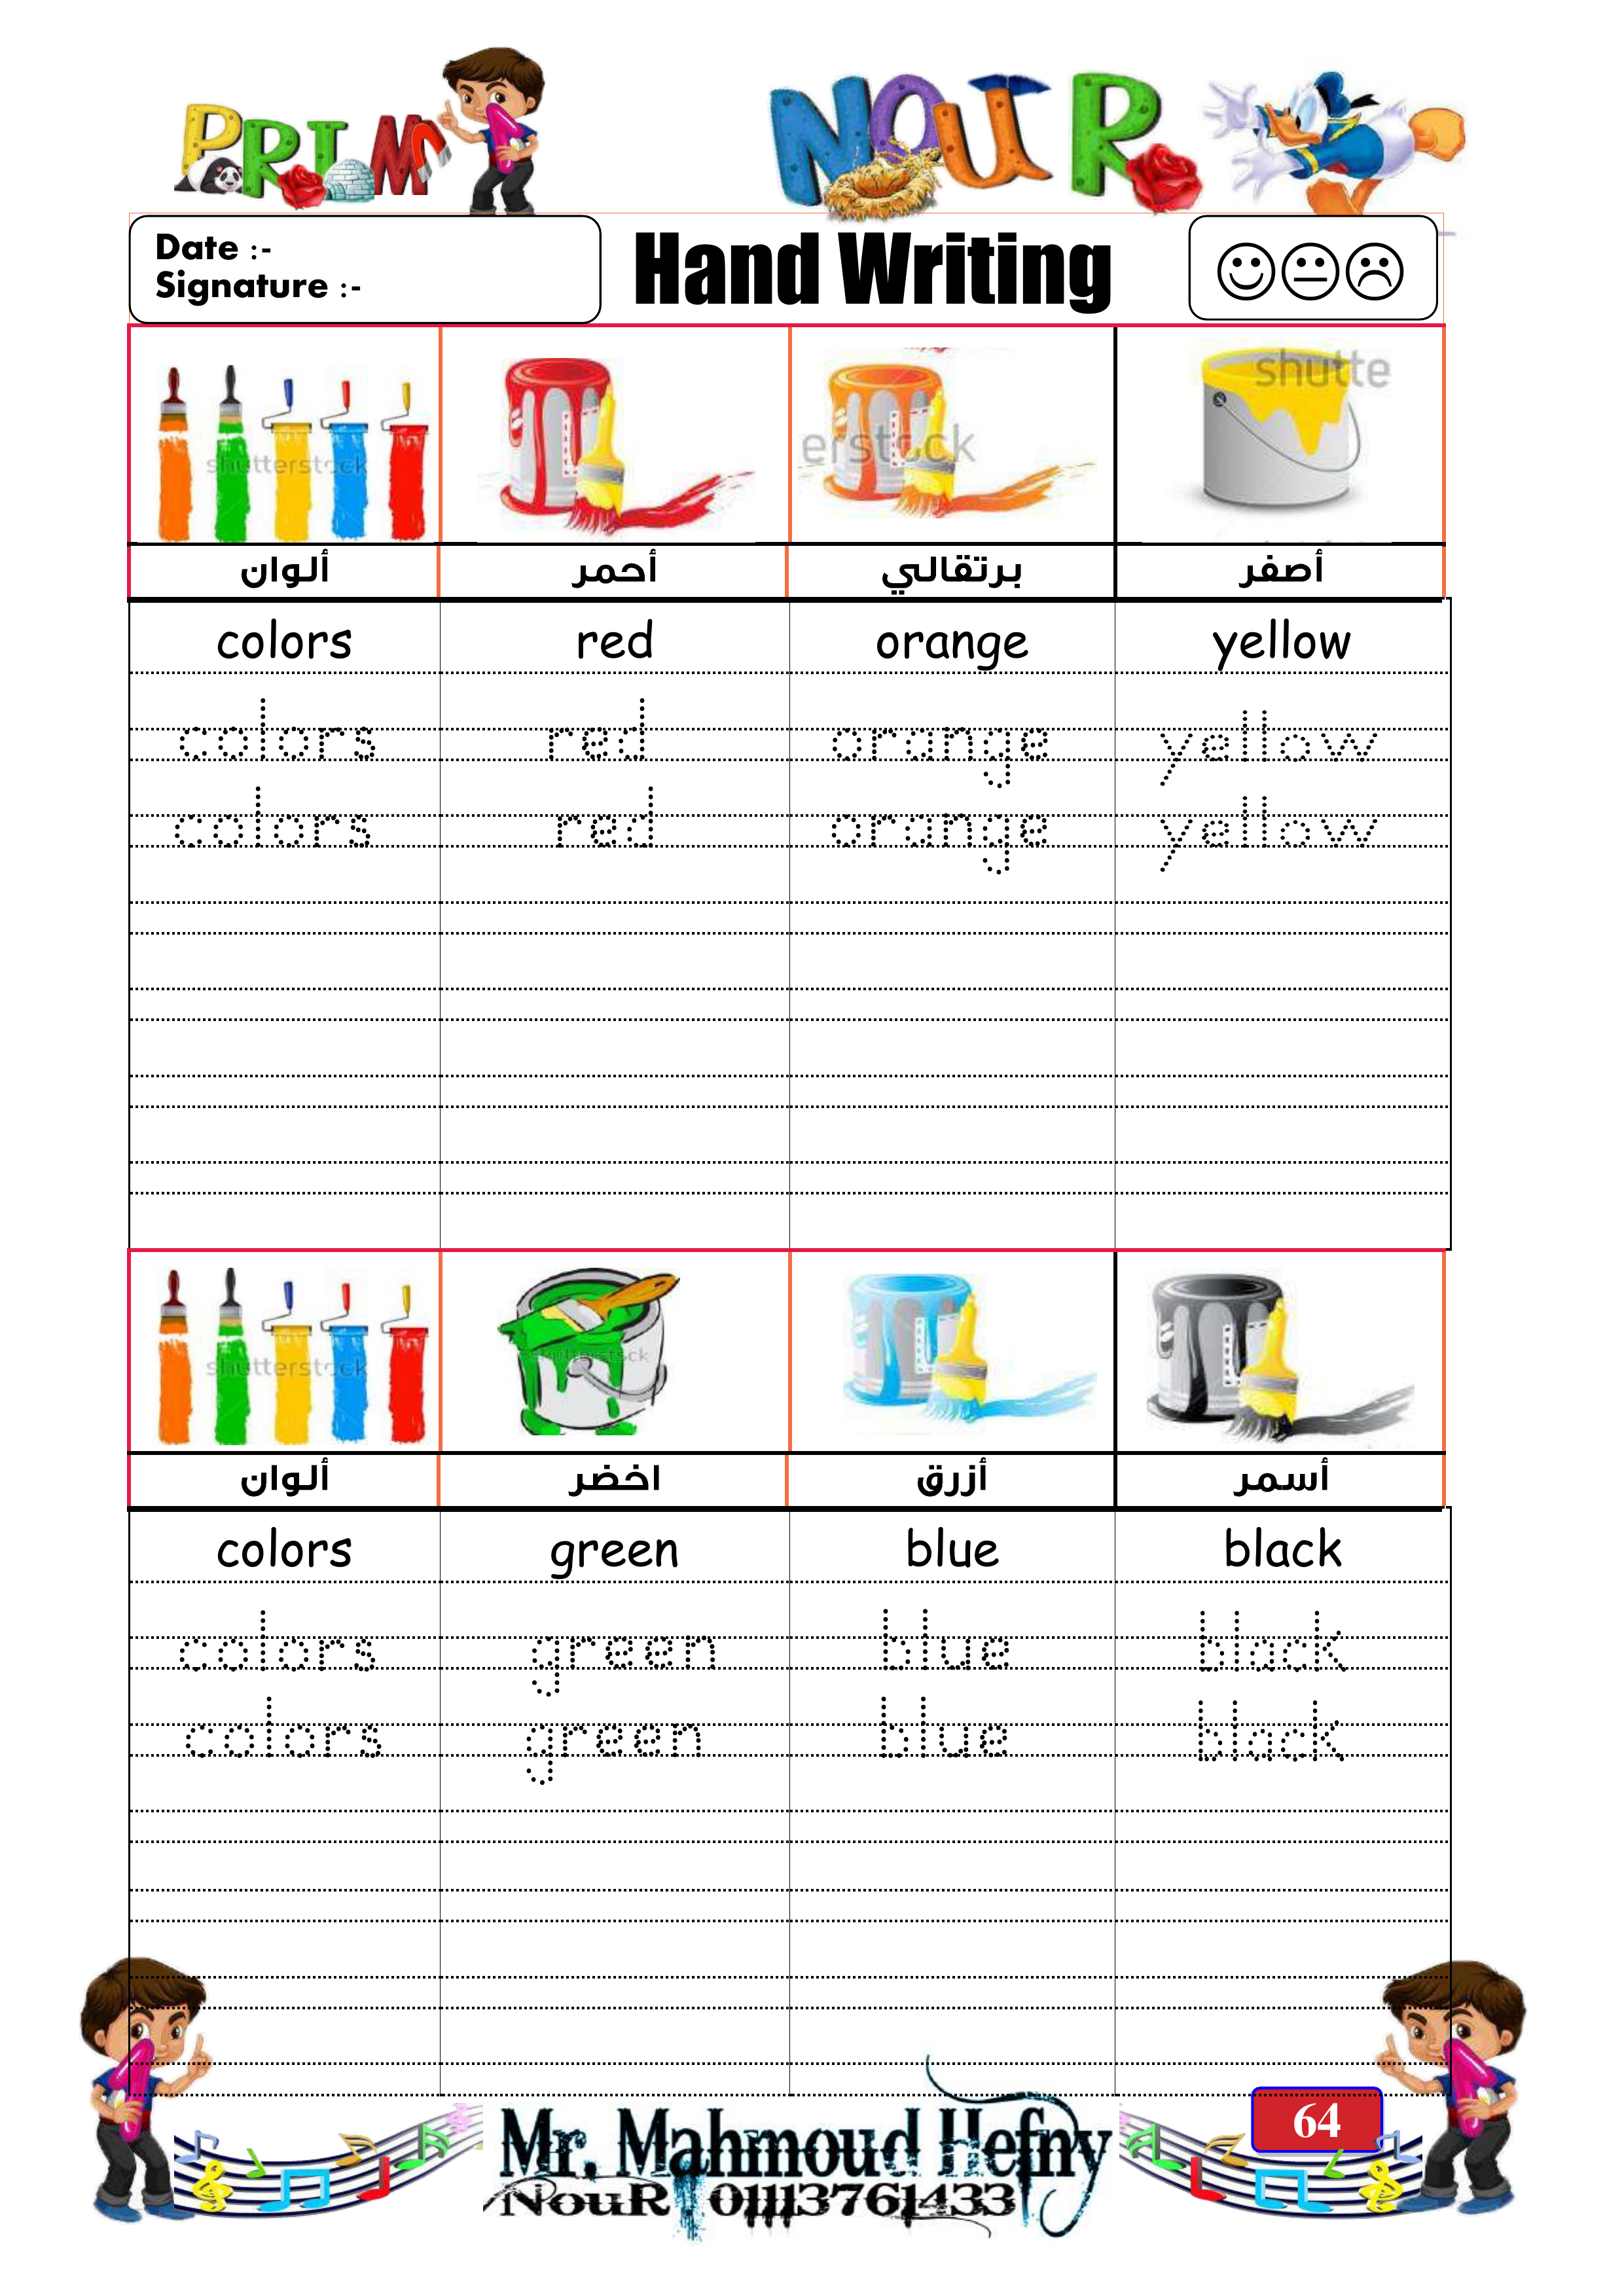 PRIM 1 NOUR
Date :-
Signature :-
Hand Writing
shutterstock
erstock
shutte
ألوان أحمر برتقالي أصفر
colors red orange yellow
colors red orange yellow
colors red orange yellow
shutterstock
shutterstock
ألوان اخضر أزرق أسمر
colors green blue black
colors green blue black
colors green blue black
64
Mr. Mahmoud Hefny
NouR 01113761433